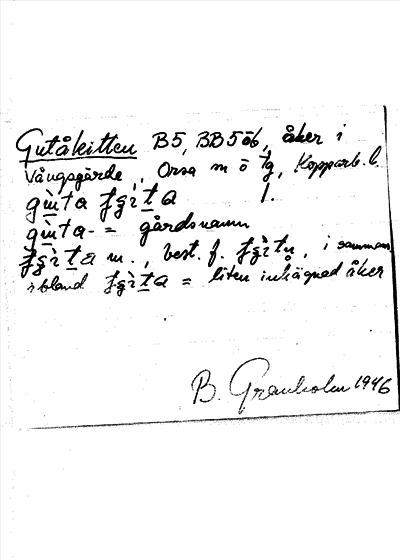 Gutåkitten B5, BB5öb, åker i
Vångsgärde, Orsa m o tg, Kopparb. l.
gùta fgìta 1.
gùta- = gårdsnamn
fgìta m., best. f. fgìtn, i samman
ibland fgìta = liten inhägnad åker
B. Granholm 1946